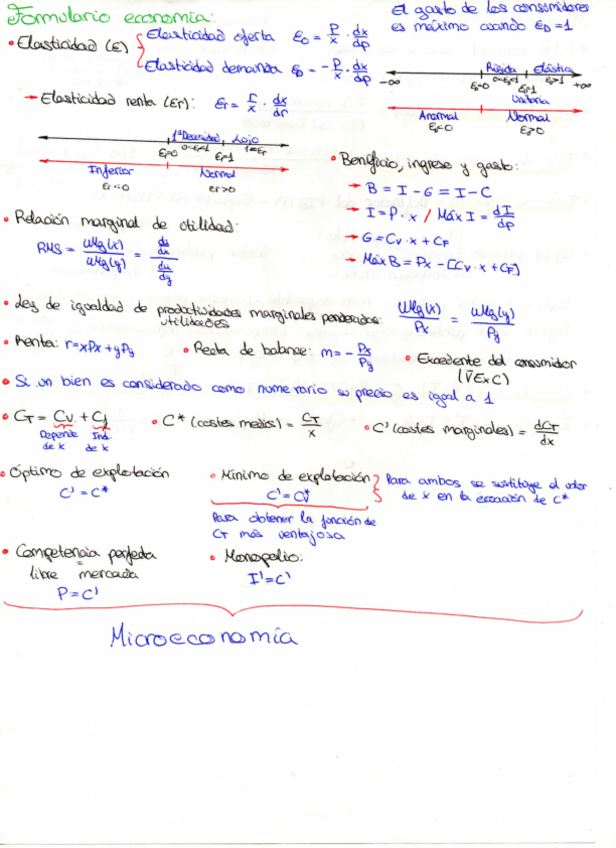 Formulario economía:
El gasto de los consumidores
es máximo cuando ε_D = 1
• Elasticidad (ε) { Elasticidad oferta ε_O = P/x · dx/dp
Elasticidad demanda ε_D = - P/x · dx/dp
Rígida Elástica
-∞ ε=0 0<ε<1 ε=1 ε>1 +∞
Unitaria
Anormal Normal
ε<0 ε>0
→ Elasticidad renta (εr): εr = r/x · dx/dr
1ª Necesidad Lujo
εr=0 0<εr<1 εr=1 1<εr
Inferior Normal
εr<0 εr>0
• Beneficio, ingreso y gasto:
→ B = I - G = I - C
→ I = P · x / Máx I = dI/dp
→ G = Cv · x + CF
→ Máx B = Px - [Cv · x + CF]
• Relación marginal de utilidad:
RMS = UMg(x)/UMg(y) = (du/dx)/(du/dy)
• Ley de igualdad de productividades marginales ponderadas: UMg(x)/Px = UMg(y)/Py
utilidades
• Renta: r = xPx + yPy • Recta de balance: m = - Px/Py • Excedente del consumidor
(VExC)
• Si un bien es considerado como numerario su precio es igual a 1
• CT = Cv + Cf • C* (costes medios) = CT/x • C' (costes marginales) = dCT/dx
Depende Ind
de x de x
• Óptimo de explotación • Mínimo de explotación } Para ambos se sustituye el valor
C' = C* C' = Cv* de x en la ecuación de C*
Para obtener la función de
CT más ventajosa
• Competencia perfecta • Monopolio:
libre mercado I' = C'
P = C'
Microeconomía